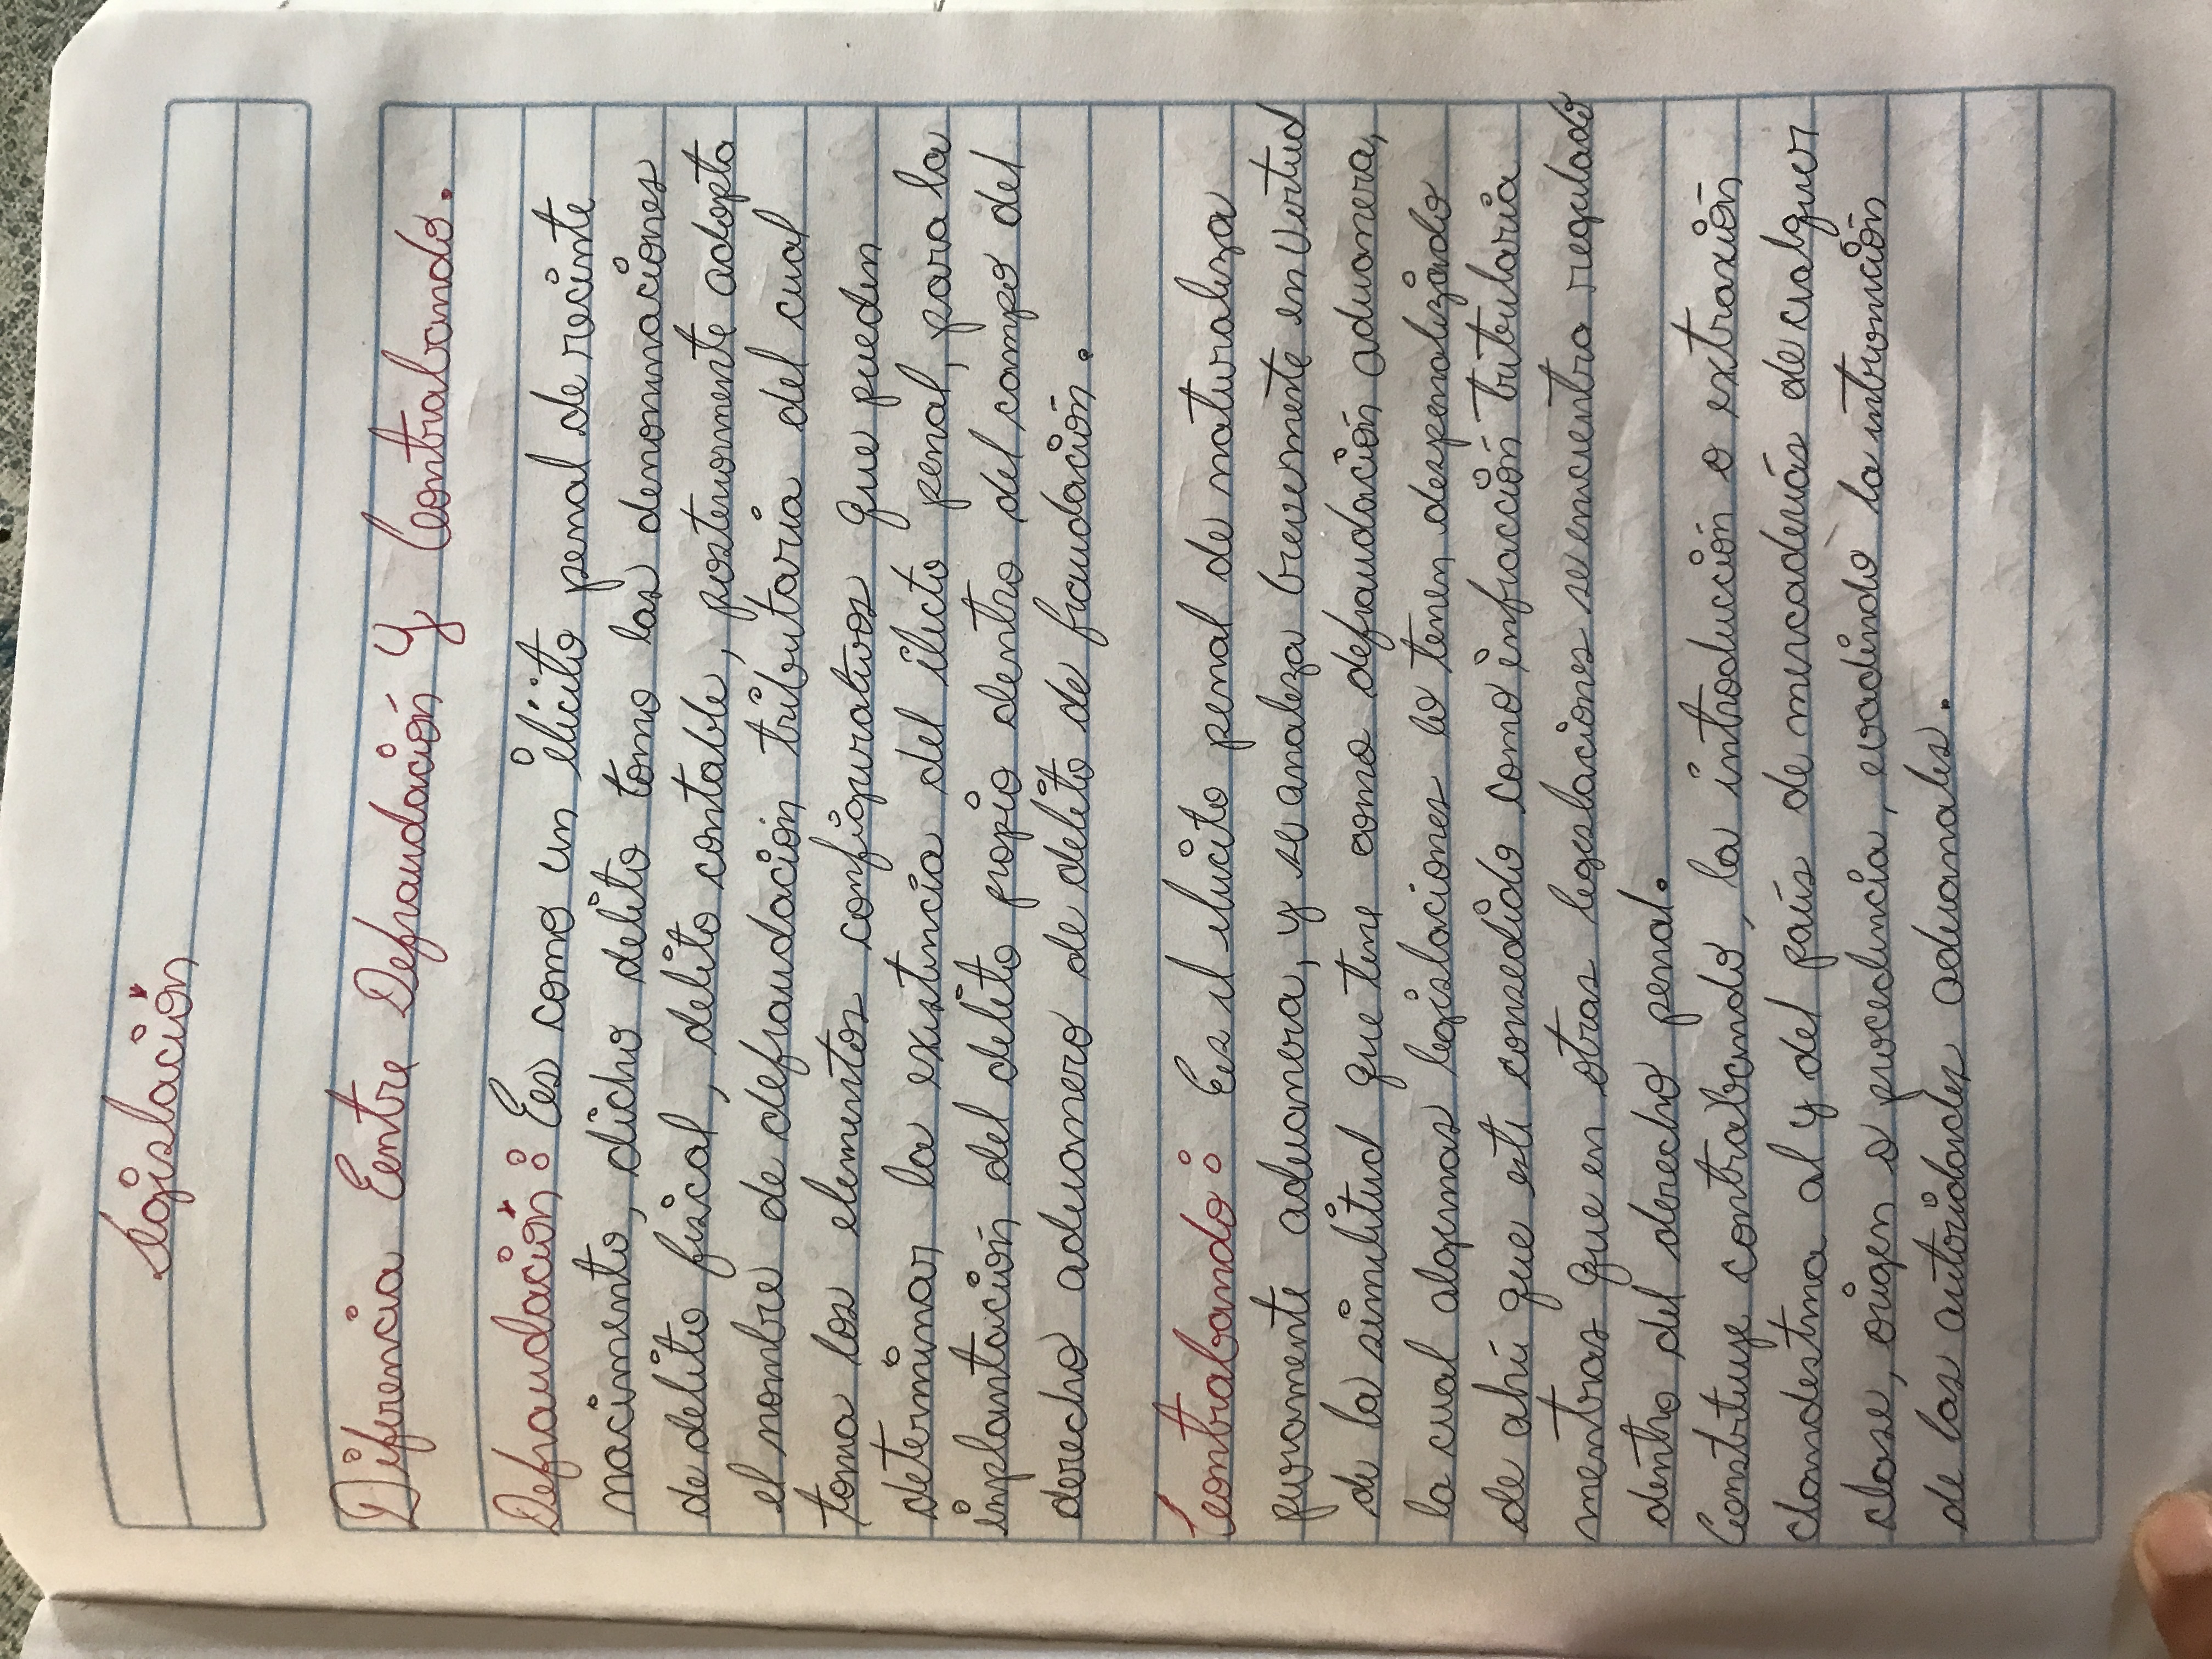 Legislación
Diferencia Entre Defraudación y Contrabando.
Defraudación: Es como un ilícito penal de reciente
nacimiento, dicho delito tomo las denominaciones
de delito fiscal, delito contable, posteriormente adopto
el nombre de defraudación tributaria del cual
toma los elementos configurativos que pueden
determinar la existencia del ilícto penal, para la
implantación del delito propio dentro del campo del
derecho aduanero de delito de ficudación.
Contrabando: Es el ilucito penal de naturaleza
puramente aduanera, y se analeza brevemente en virtud
de la similitud que tiene como defraudación aduanera,
la cual algunas legislaciones lo tenen despenalizado
de ahí que este consedido como infracción tributaria
mentras que en otras legeslaciones se encuentra regulado
dentro del derecho penal.
Constituye contrabando, la introducción o extraxión
clandestina al y del país de mercaderías de cualquer
clase, origen o procedencia, evadindo la intromición
de las autoridades aduanales.